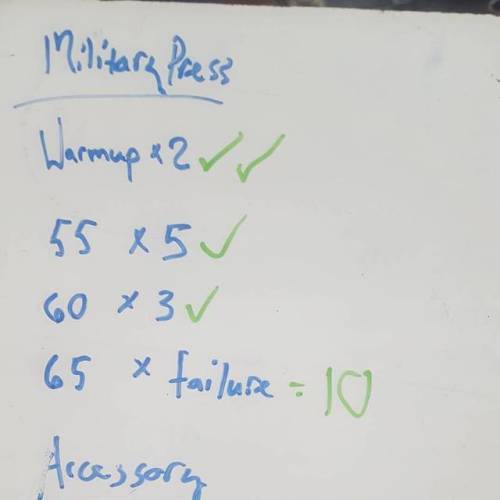 Military Press
Warmup x 2 ✓ ✓
55 x 5 ✓
60 x 3 ✓
65 x failure = 10
Accessory